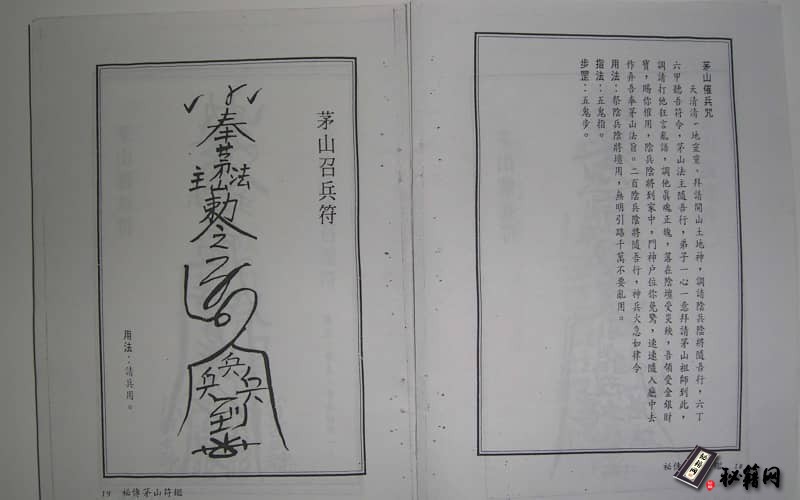 茅山催兵咒
天清清，地靈靈。拜請開山土地神，調請陰兵陰將隨吾行，六丁
六甲聽吾符令，茅山法主隨吾行，弟子一心一意拜請茅山祖師到此，
調請打他狂言亂語，調他真魂正魄，落在陰壇受災殃，吾領受金銀財
寶，賜你權用，陰兵陰將到家中，門神戶位你免驚，速速隨入廳中去
作弄吾奉茅山法旨。二百陰兵陰將隨吾行，神兵火急如律令
用法：祭陰兵陰將壇用，無明引路千萬不要亂用。
指法：五鬼指。
步罡：五鬼步。
茅山召兵符
奉茅山法主勅之
兵兵兵到
用法：請兵用。
19 祕傳茅山符鑑
祕傳
18
秘籍网
秘籍网